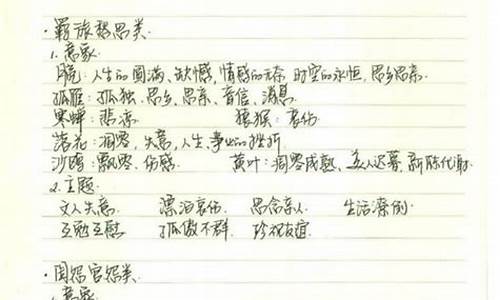 ·羁旅愁思类.
1.意象
月亮:人生的圆满、缺憾,情感的无奈 时空的永恒,思乡思亲.
孤雁:孤独、思乡、思亲、音信、消息
寒蝉:悲凉. 猿猴:哀伤
落花:凋零,失意,人生、事业的挫折
沙鸥:飘零、伤感 黄叶:凋零成熟、美人迟暮,新陈代谢.
2.主题
文人失意. 漂泊哀伤. 思念亲人. 生活潦倒.
互勉互慰 孤傲不群. 珍视友谊.
·闺怨宫怨类.
1.意象